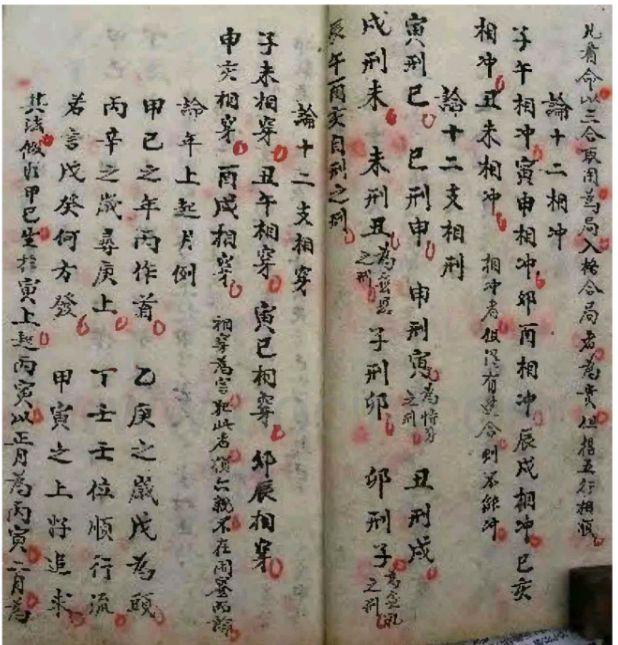 凡看命以三合取用為局入格合局者為貴但揩五行相順
論十二相冲
子午相冲寅申相冲卯酉相冲辰戌相冲巳亥
相冲丑未相冲 相冲者但没有逢合則不能冲
論十二支相刑
寅刑巳 巳刑申 申刑寅為恃势之刑 丑刑戌
戌刑未 未刑丑為無恩之刑 子刑卯 卯刑子為無礼之刑
辰午酉亥自刑之刑
論十二支相穿
子未相穿 丑午相穿 寅巳相穿 卯辰相穿
申亥相穿 酉戌相穿 相穿為害犯此者損六親不在
論年上起月例
甲己之年丙作首 乙庚之歲戊為頭
丙辛之歲尋庚上 丁壬壬位順行流
若言戊癸何方發 甲寅之上好追求
其法假如甲己生於寅上起丙寅以正月為丙寅二月為